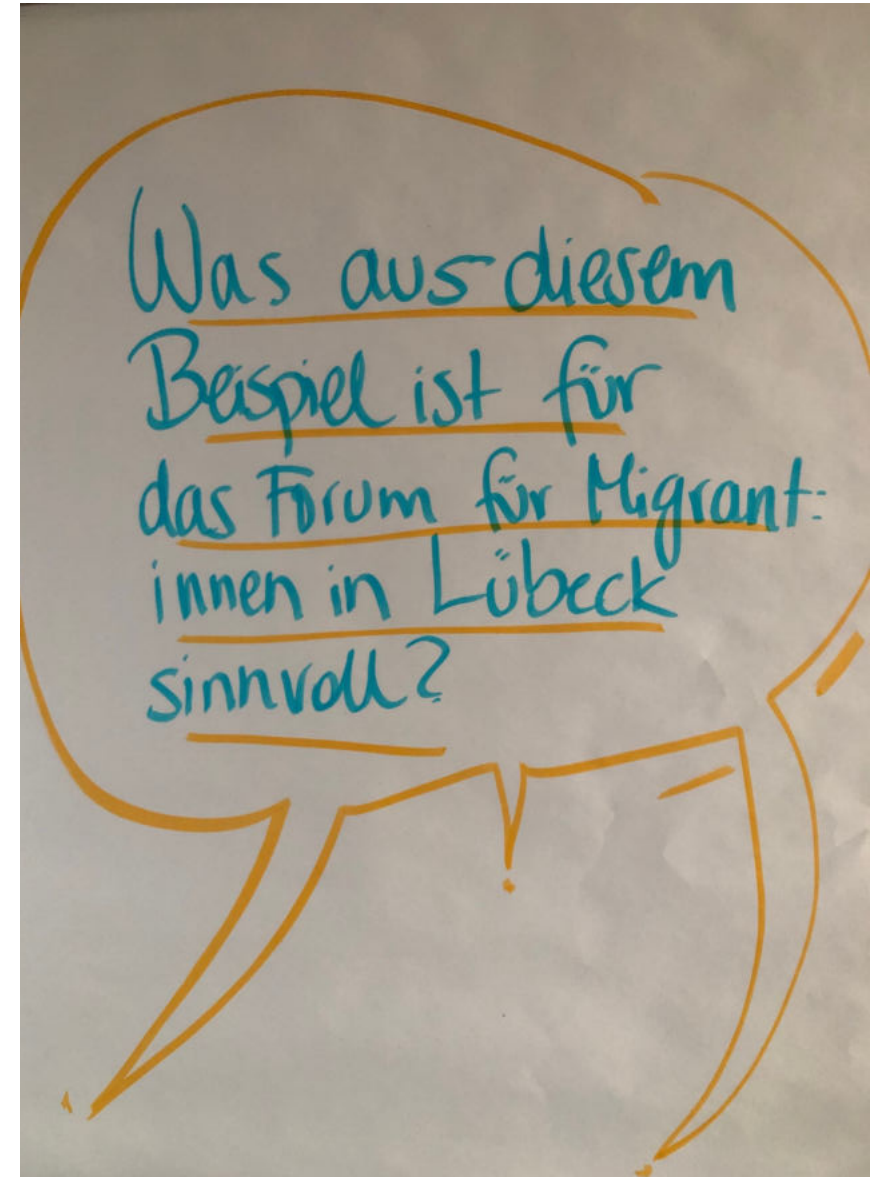 Was aus diesem
Beispiel ist für
das Forum für Migrant:
innen in Lübeck
sinnvoll?